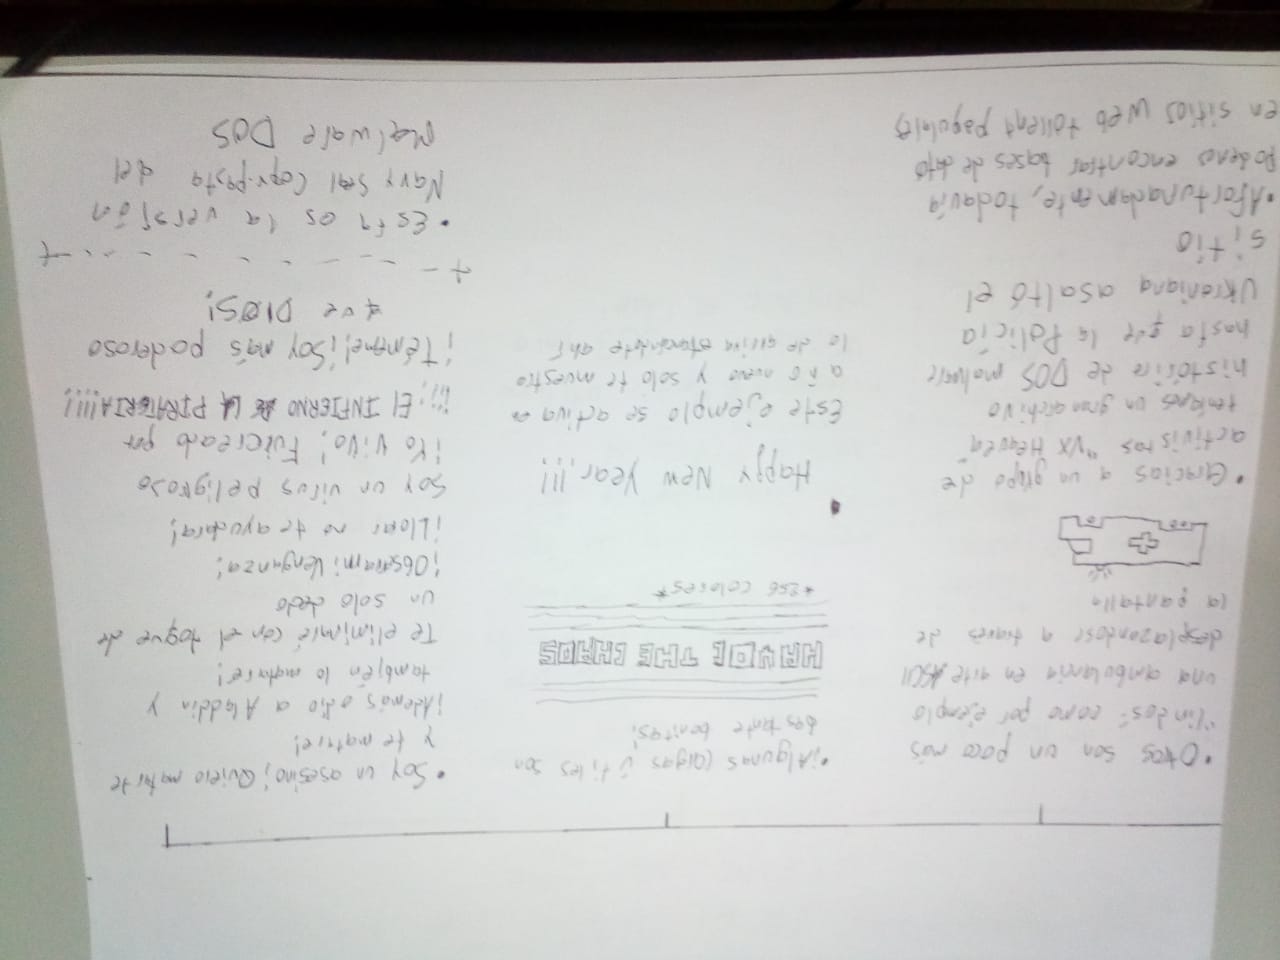 • Otros son un poco más
"lindos" como por ejemplo
una ambulancia en arte ASCII
desplazandose a traves de
la pantalla
• Gracias a un grupo de
activistas "VX Heaven"
teniamos un gran archivo
histórico de DOS malware
hasta que la Policía
Ukraniana asaltó el
sitio
• Afortunadamente, todavía
podemos encontrar bases de dato
en sitios web populares
• ¡Algunas cargas útiles son
bastante bonitas!
THE CHAOS
*256 colores*
Happy New Year!!!
Este ejemplo se activa en
año nuevo y solo te muestra
lo de arriba
• Soy un asesino; Quiero matarte
y te matare!
¡Además odio a Aladdin y
también lo matare!
Te eliminié con el toque de
un solo dedo
¡Observa mi Venganza!
¡Llorar no te ayudara!
Soy un virus peligroso
¡Yo vivo! Fui creado por
¡¡¡¡El INFIERNO DE LA PIRATERIA!!!!!
¡Témame! ¡Soy más poderoso
que DIOS!
• Esta es la versión
Navy Seal Copy-pasta del
Malware DOS